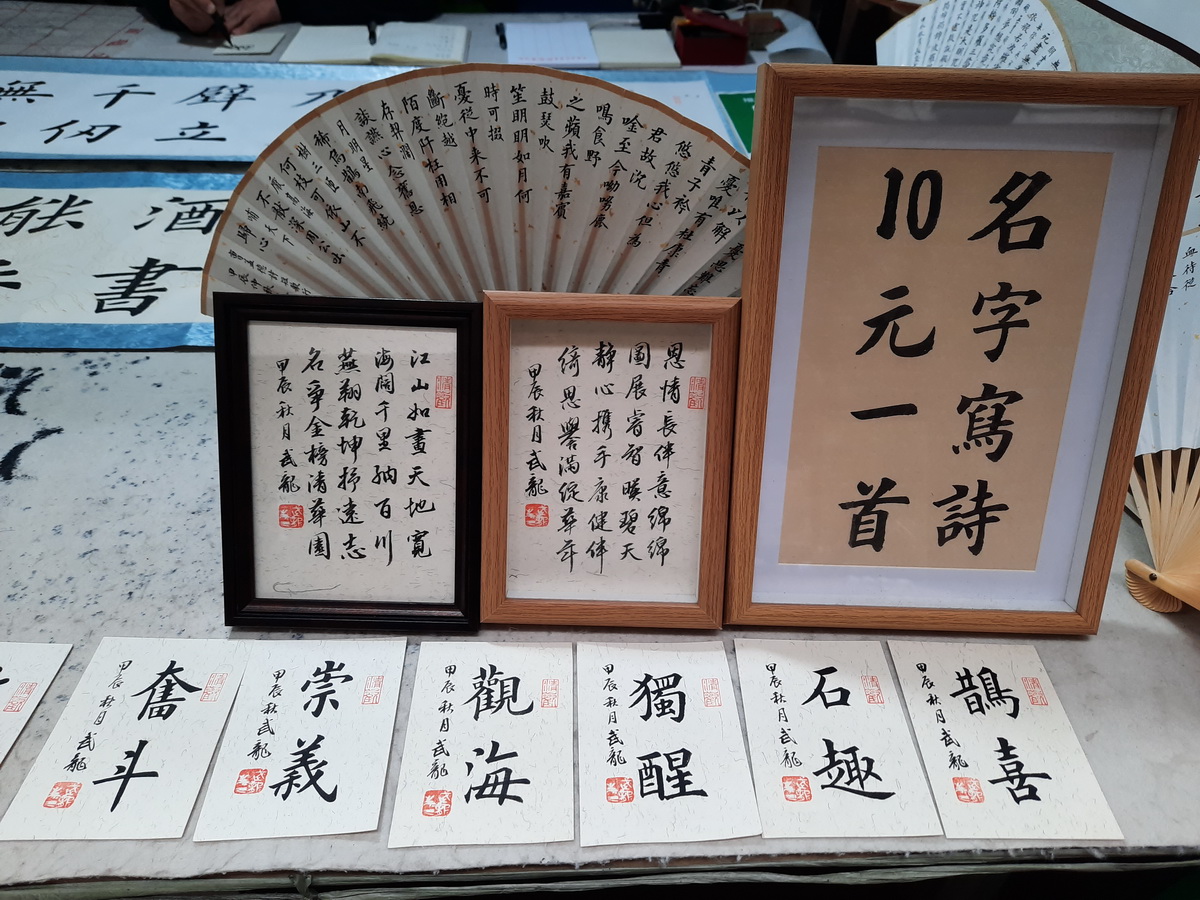 無千壁乃
仞立
能酒
書
憂以解憂
青青子衿
悠悠我心但為
君故沉
吟至今呦呦鹿
鳴食野
之蘋我有嘉賓
鼓瑟吹
笙明明如月何
時可掇
憂從中來不可
斷絕越
陌度阡枉用相
存契闊
談讌心念舊恩
月明星
稀烏鵲南飛繞
樹三匝
何枝可依山不
名字寫詩
10元一首
江山如畫天地寬
海闊千里納百川
燕翔乾坤抒遠志
名爭金榜清華園
甲辰秋月武龍
恩情長伴意綿綿
圖展睿智暎碧天
靜心携手康健伴
綺思譽滿綻華年
甲辰秋月武龍
奮斗
甲辰秋月武龍
崇義
甲辰秋武龍
觀海
甲辰秋月武龍
獨醒
甲辰秋月武龍
石趣
甲辰秋月武龍
鵲喜
甲辰秋月武龍